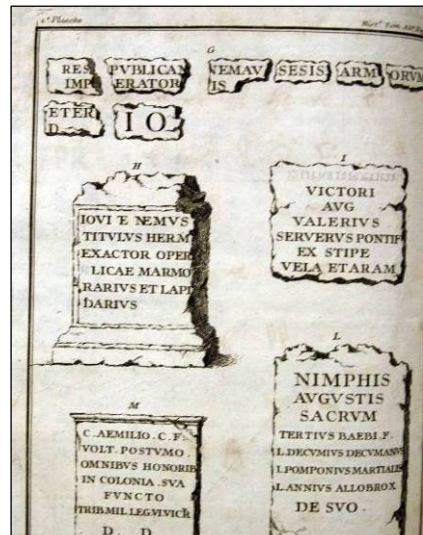 2.e Planche
G
RES PVBLICAN NEMAV SESIS ARM ORVM
IMP ERATOR IS
ETER I O
D
H
IOVI E NEMVS
TITVLVS HERM
EXACTOR OPER
LICAE MARMO
RARIVS ET LAPI
DARIVS
I
VICTORI
AVG
VALERIVS
SERVERVS PONTIF
EX STIPE
VELA ETARAM
L
NIMPHIS
AVGVSTIS
SACRVM
TERTIVS BAEBI . F .
L. DECVMIVS DECVMANVS
L. POMPONIVS MARTIALIS
L. ANNIVS ALLOBROX
DE SVO .
M
C . AEMILIO . C . F .
VOLT . POSTVMO .
OMNIBVS HONORIB
IN COLONIA . SVA
FVNCTO
TRIB.MIL.LEG.VI.VICR
D . D .